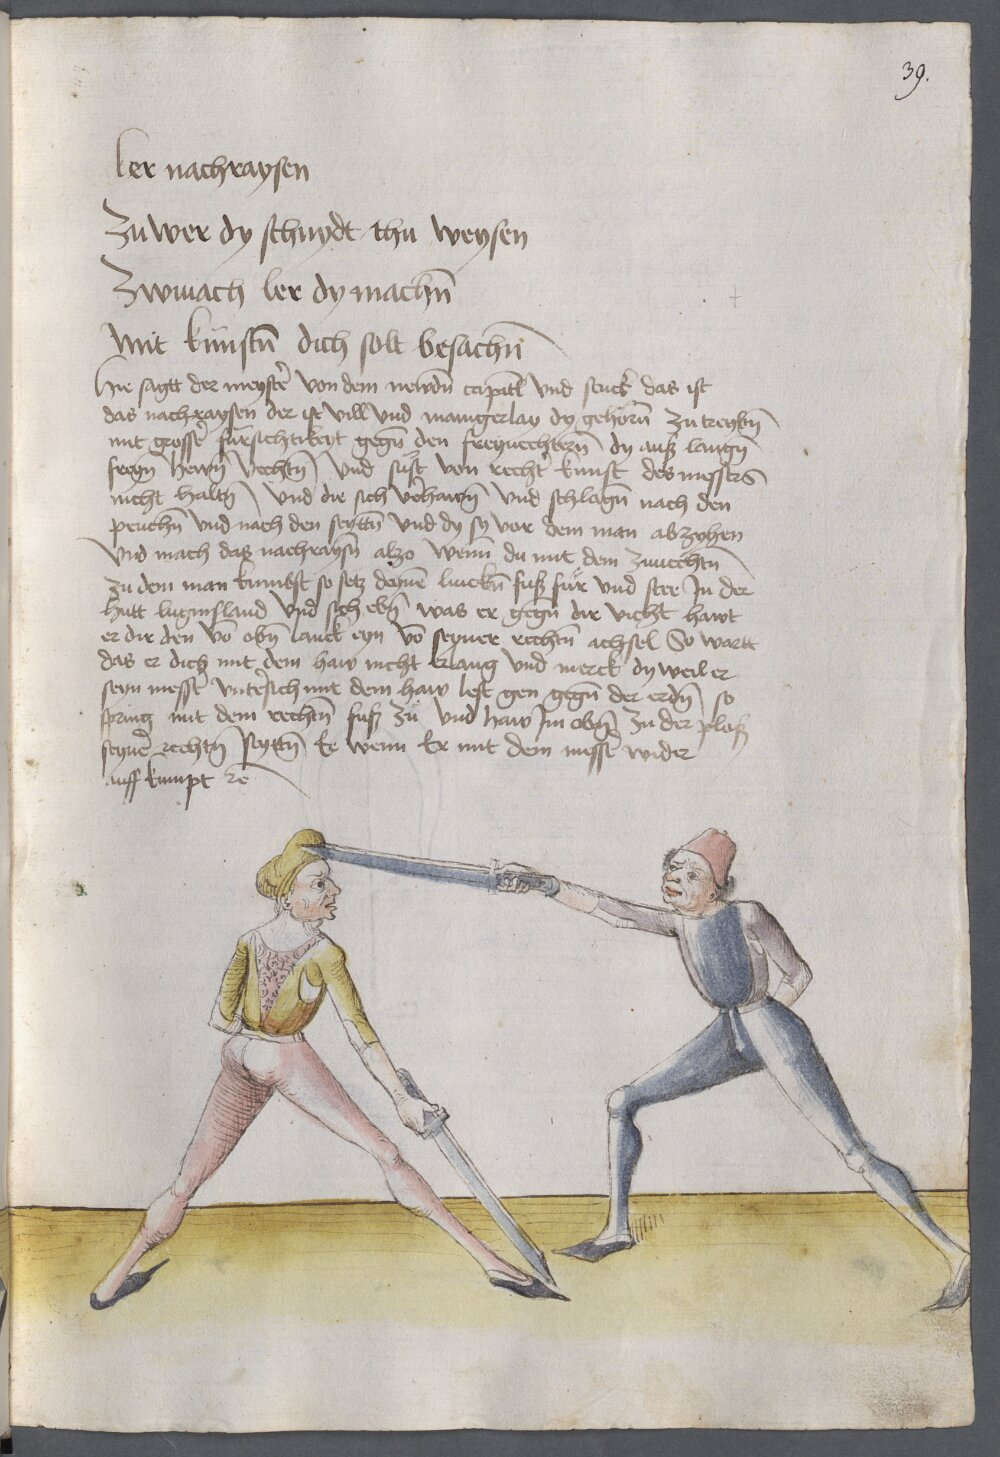 39.
ler nachraysen
Zu wer dy schnydt thu weysen
Zwinach ler dy machn̄
Mit künstn̄ dich solt besachn̄
Hie sagtt der meystẽ von dem newdn̄ capitl̄ vnd stuck das ist
das nachraysen der ist vill vnd manigerlay dy gehorn̄ zu treybn̄
mit grossẽ fürsichtikeyt gegn̄ den freyuechtern̄ dy auß langn̄
freyn̄ hewn̄ vechtn̄ vnd süst von rechtẽ kunst des messers
nicht haltn̄ vnd die sich vẽhawn̄ vnd schlagn̄ nach den
pruchn̄ vnd nach den seyttn̄ vnd dy sy vor dem man abzyhen
Vnd mach das nachraysn̄ alzo wenn̄ du mit dem zuuechtn̄
zu dem man kumbst so setz deynẽ linckn̄ fuß für vnd stee In der
hutt luginsland vnd sich ebn̄ was er gegn̄ dir vicht hawt
er dir den vō obn̄ lanck eyn vō seyner rechtn̄ achsel So wartt
das er dich mit dem haw nicht erlang vnd merck dy weil er
seyn messẽ vntẽsich mit dem haw lest gen gegn̄ der erdn̄ so
spring mit dem rechtn̄ fuß zu vnd haw Im obn̄ zu der ploß
seynẽ rechtn̄ seyttn̄ Ee wenn Er mit dem messẽ wider
auff kumpt ꝛc̄